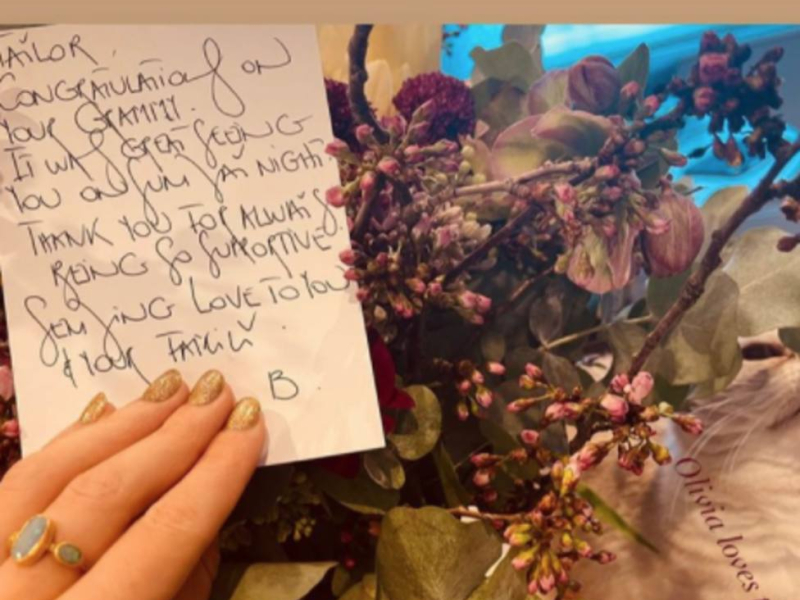 TAILOR,
CONGRATULATIONS ON
YOUR GRAMMY.
IT WAS GREAT SEEING
YOU ON SUNDAY NIGHT.
THANK YOU FOR ALWAYS
BEING SO SUPPORTIVE.
SENDING LOVE TO YOU
& YOUR FAMILY.
B.
Olivia loves